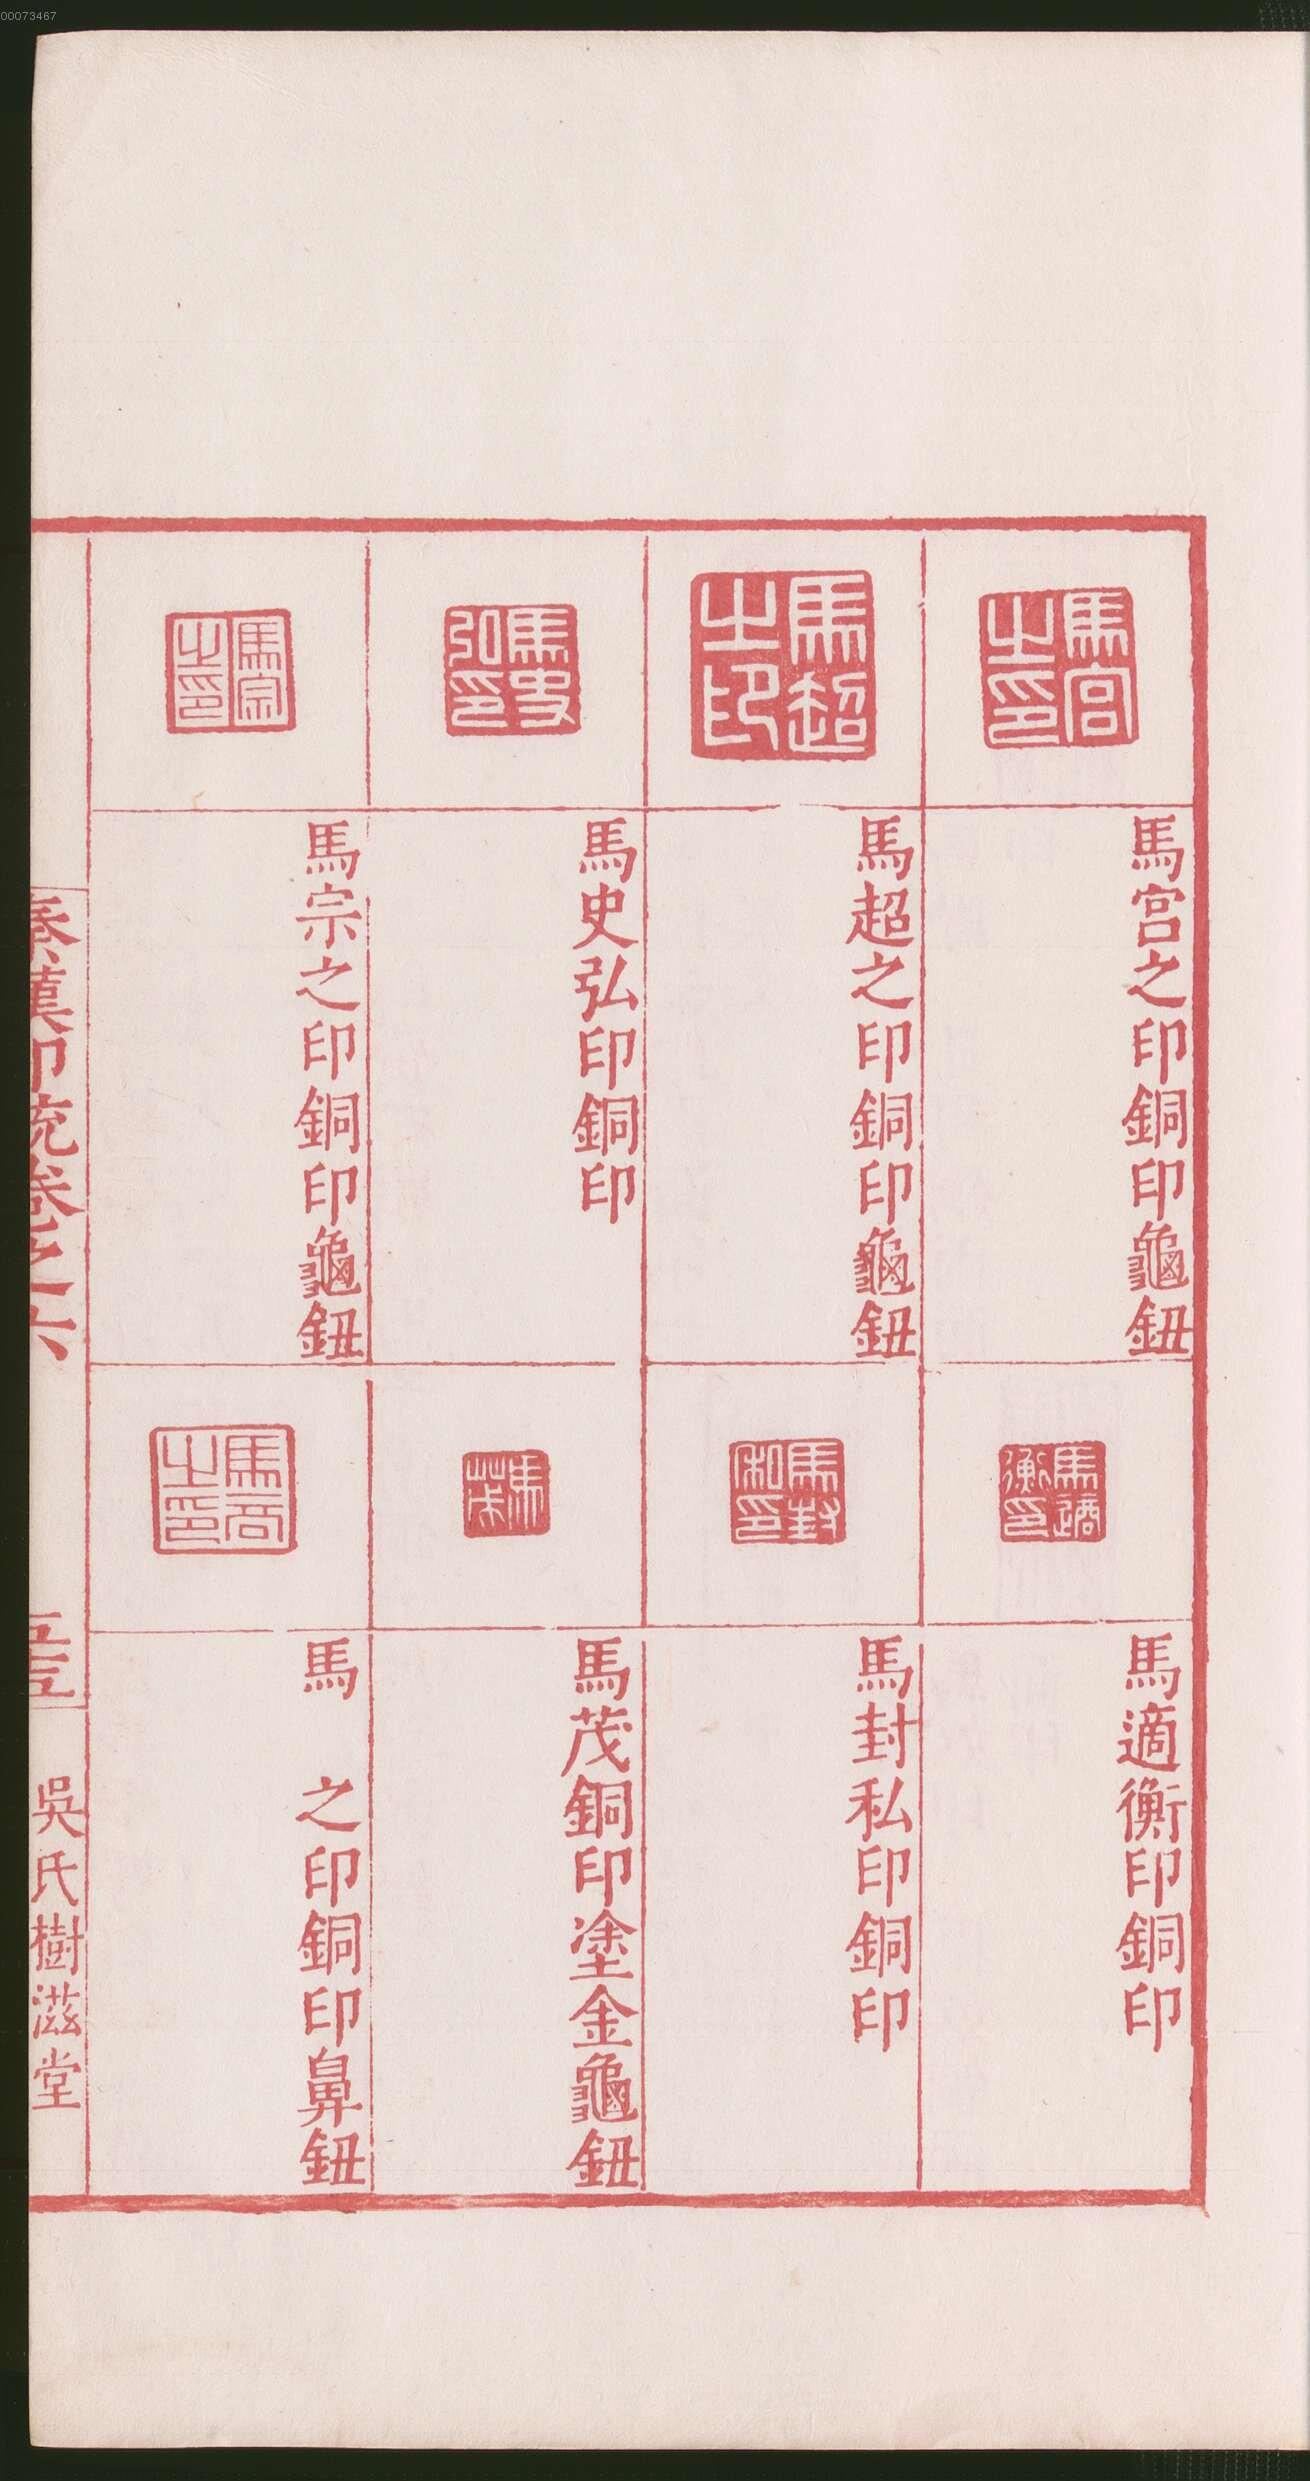 00073467
馬宮之印
馬宮之印銅印龜鈕
馬超之印
馬超之印銅印龜鈕
馬史弘印
馬史弘印銅印
馬宗之印
馬宗之印銅印龜鈕
馬適衡印
馬適衡印銅印
馬封私印
馬封私印銅印
馬茂
馬茂銅印塗金龜鈕
馬之印
馬　之印銅印鼻鈕
秦漢印統卷之六
吳氏樹滋堂